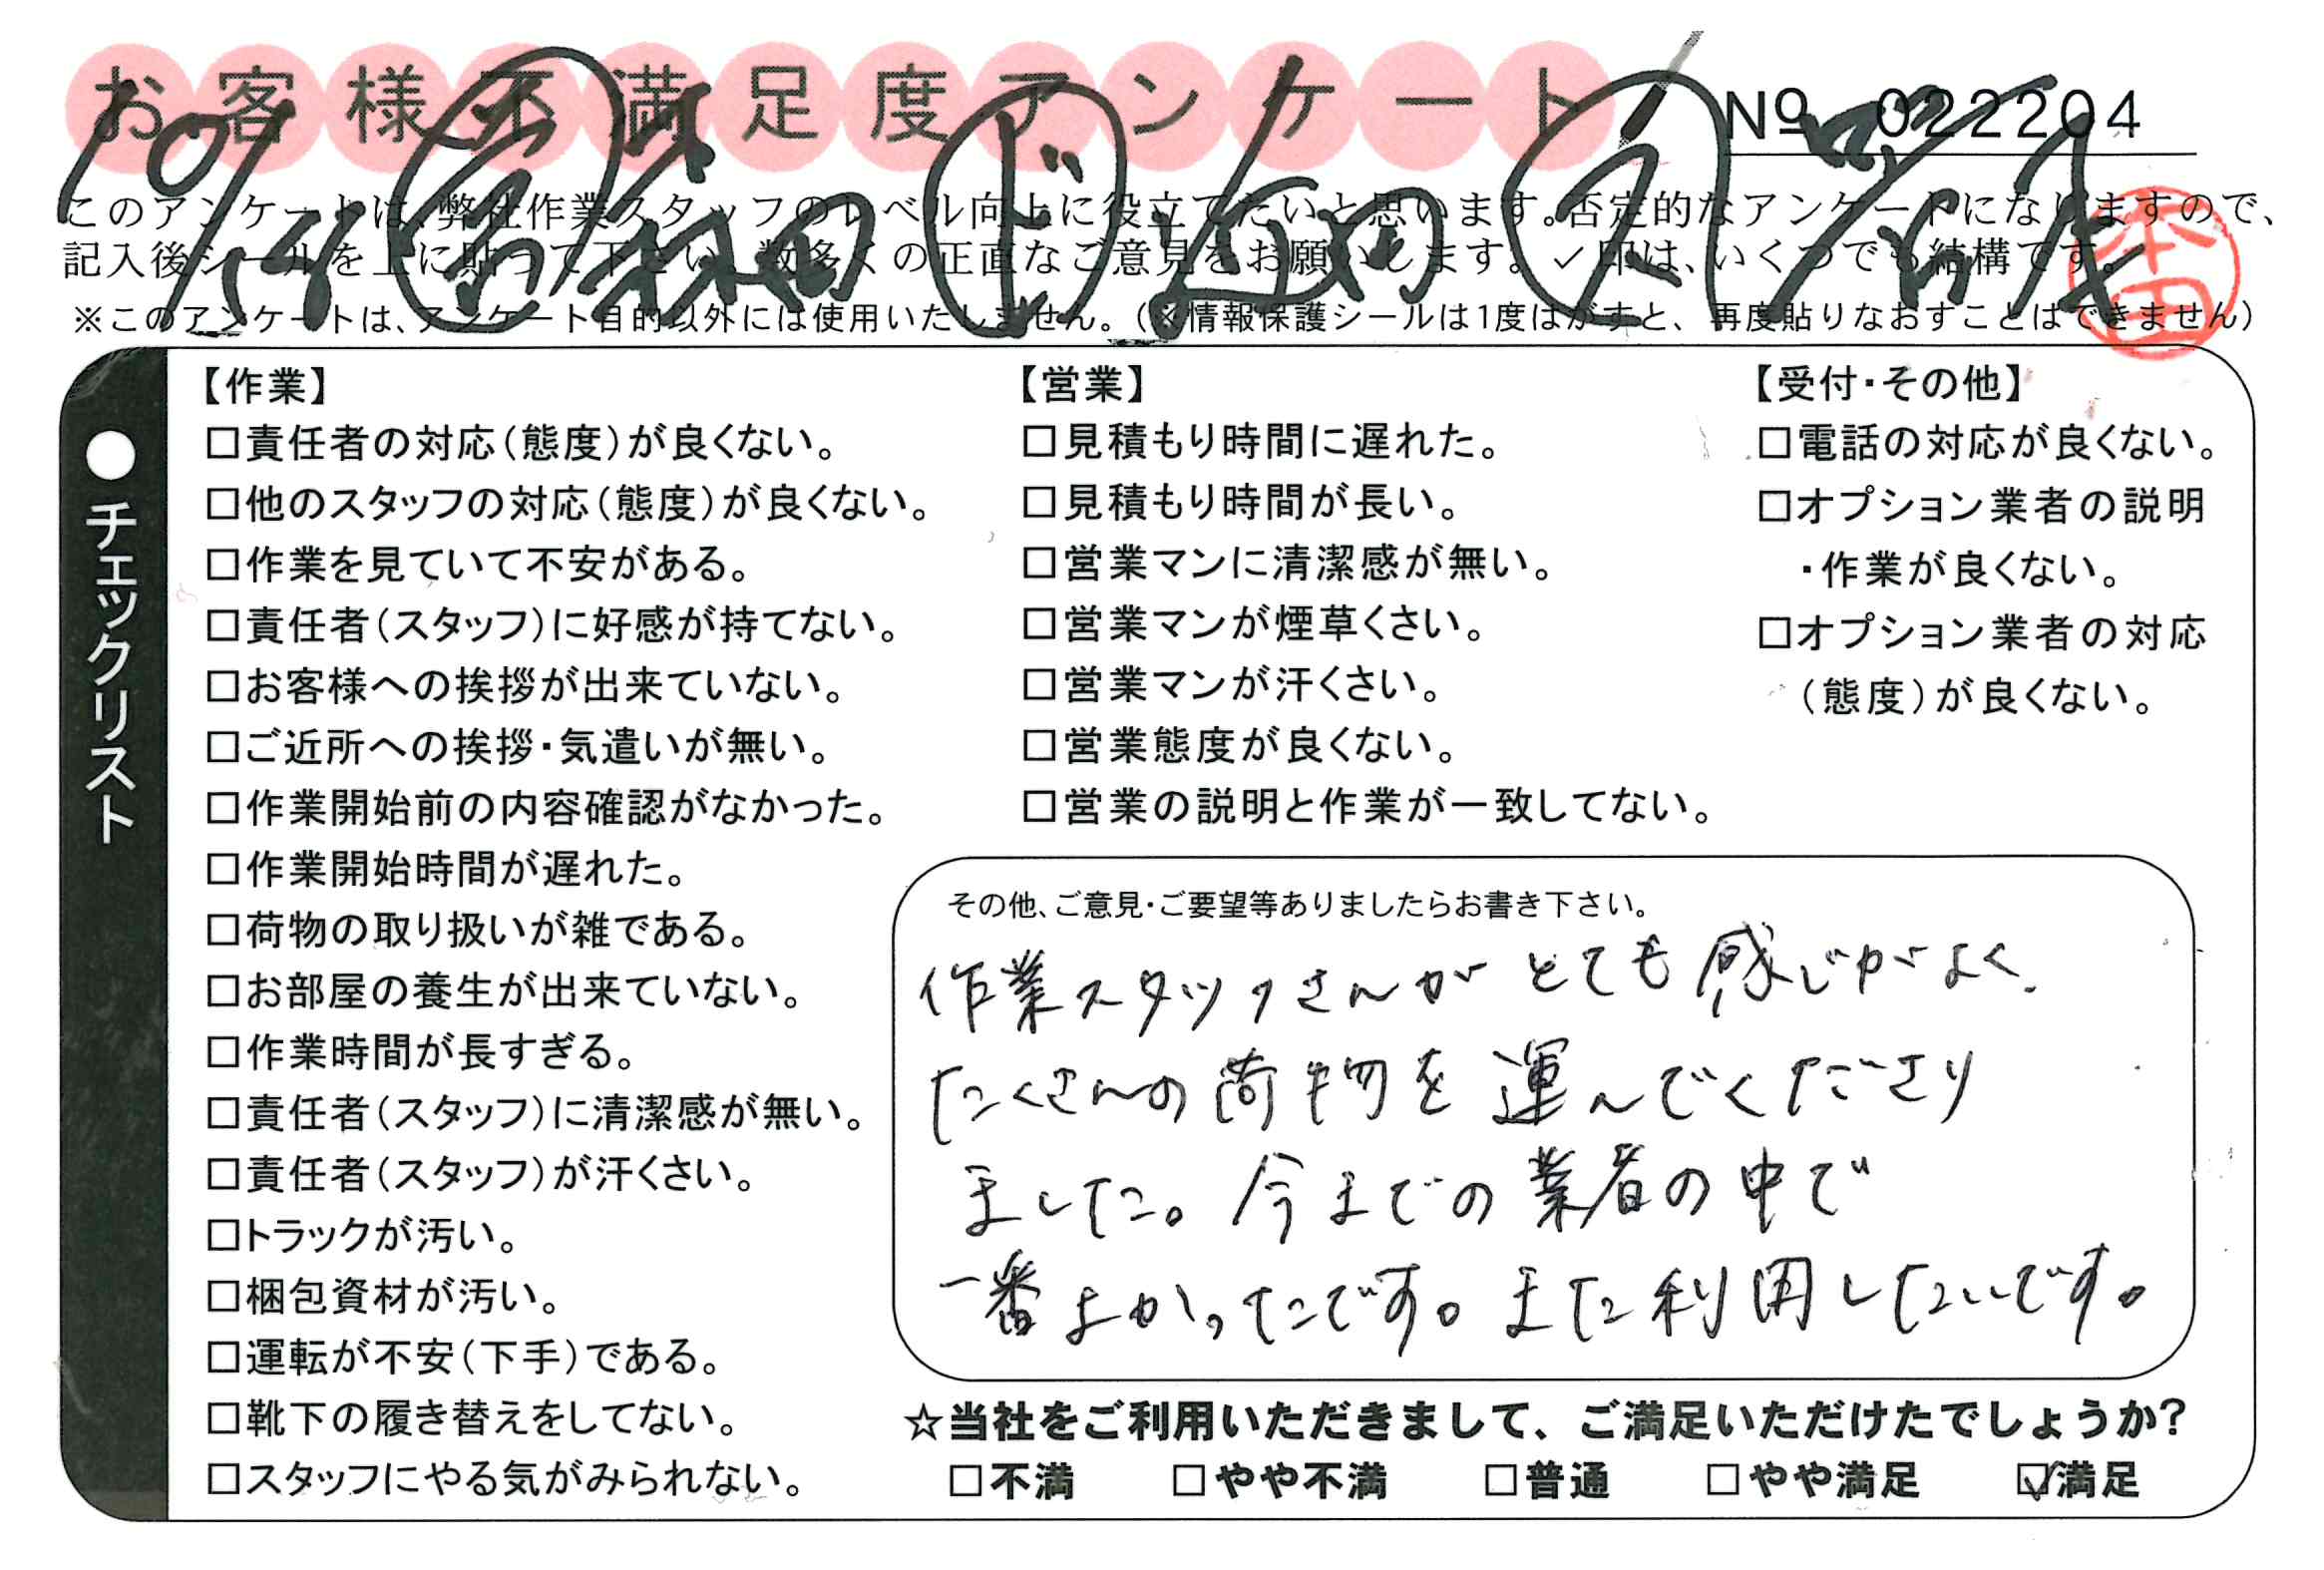 お客様不満足度アンケート
№ 022204
このアンケートは、弊社作業スタッフのレベル向上に役立てたいと思います。否定的なアンケートになりますので、
記入後シールを上に貼って下さい。数多くの正直なご意見をお願いします。✓印は、いくつでも結構です。
※このアンケートは、アンケート目的以外には使用いたしません。（※情報保護シールは1度はがすと、再度貼りなおすことはできません）
本田
●チェックリスト
【作業】
□責任者の対応（態度）が良くない。
□他のスタッフの対応（態度）が良くない。
□作業を見ていて不安がある。
□責任者（スタッフ）に好感が持てない。
□お客様への挨拶が出来ていない。
□ご近所への挨拶・気遣いが無い。
□作業開始前の内容確認がなかった。
□作業開始時間が遅れた。
□荷物の取り扱いが雑である。
□お部屋の養生が出来ていない。
□作業時間が長すぎる。
□責任者（スタッフ）に清潔感が無い。
□責任者（スタッフ）が汗くさい。
□トラックが汚い。
□梱包資材が汚い。
□運転が不安（下手）である。
□靴下の履き替えをしてない。
□スタッフにやる気がみられない。
【営業】
□見積もり時間に遅れた。
□見積もり時間が長い。
□営業マンに清潔感が無い。
□営業マンが煙草くさい。
□営業マンが汗くさい。
□営業態度が良くない。
□営業の説明と作業が一致してない。
【受付・その他】
□電話の対応が良くない。
□オプション業者の説明
・作業が良くない。
□オプション業者の対応
（態度）が良くない。
その他、ご意見・ご要望等ありましたらお書き下さい。
作業スタッフさんがとても感じがよく、
たくさんの荷物を運んでくださり
ました。今までの業者の中で
一番よかったです。また利用したいです。
☆当社をご利用いただきまして、ご満足いただけたでしょうか？
□不満 □やや不満 □普通 □やや満足 ☑満足